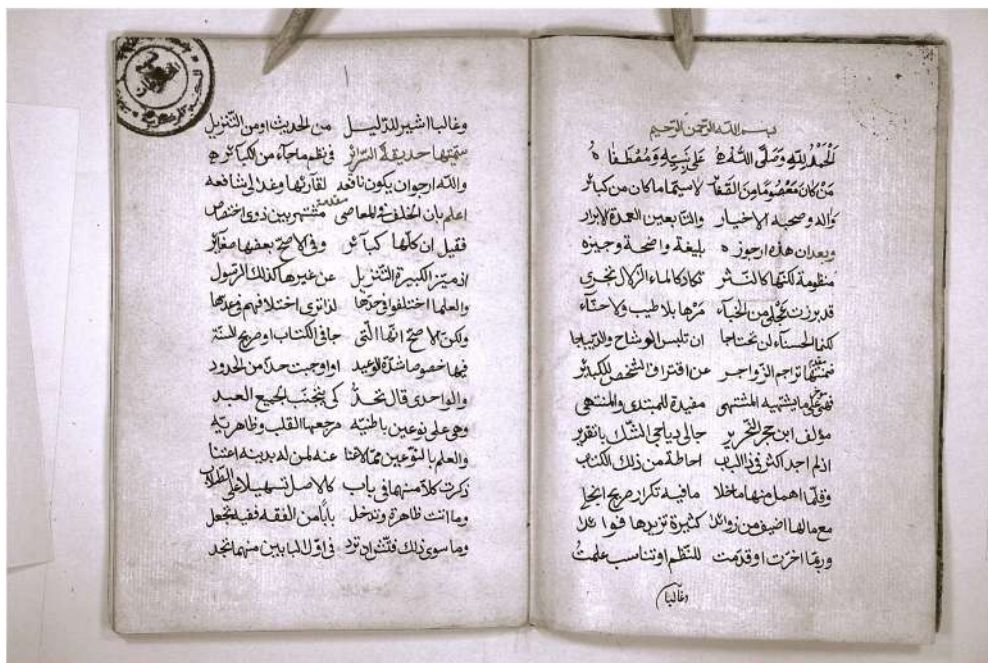 بسم الله الرحمن الرحيم
الحمد لله وصلى الله على نبيه ومصطفاه
من كان معصوما من الصغائر لا سيما ما كان من كبائر
وآله وصحبه الاخيار والتابعين العمدة الابرار
وبعد ان هذه ارجوزه بليغة واضحة وجيزه
منظومة لكنها كالنثر تكاد كالماء الزلال تجري
قد برزت تجلى من الخباء مرها بلا طيب ولا حناء
كذا الحسناء لن تحتاجا ان تلبس الوشاح والديباجا
ضمنتها تراجم الزواجر عن اقتراف الشخص للكبائر
فهو على ما يشتهيه المشتهى مفيدة للمبتدى والمنتهى
مؤلف ابن حجر النحرير جالى دياجي الشك بالتقرير
اذ لم اجد اكثر في ذا الباب احاطة من ذلك الكتاب
وقلما اهمل منها ما خلا ما فيه تكرار صريح انجلى
مع ما لها اضيف من زوائد كثيرة تزيدها فوائد
وربما اخرت او قدمت للنظم او تناسب علمت
وغالبا
وغالبا اشير للدليل من الحديث او من التنزيل
سميتها حديقة السرائر في نظم ما جاء من الكبائر
والله ارجو ان يكون نافعه لقارئها وغدا لي شافعه
مقدمة
اعلم بان الخلف والمعاصي مشتهر بين ذوي اختصاص
فقيل ان كلها كبائر وفي الاصح بعضها صغائر
اذ ميز الكبيرة التنزيل عن غيرها كذلك الرسول
والعلما اختلفوا في حدها لذا ترى اختلافهم في عدها
ولكن الاصح انها التي جا في الكتاب او صريح السنة
فيها خصوصا شدة الوعيد او اوجبت حدا من الحدود
والواحدي قال تحد كي يجتنب الجميع العبد
وهي على نوعين باطنيه مرجعها القلب وظاهريه
والعلم بالنوعين مما لا غنا عنه لمن له بدينه اعتنا
ذكرت كلا منهما في باب كالاصل تسهيلا على الطلاب
وما اتت ظاهرة وتدخل بابا من الفقه ففيه تجعل
وما سوى ذلك فلترد في اول البابين منهما تجد